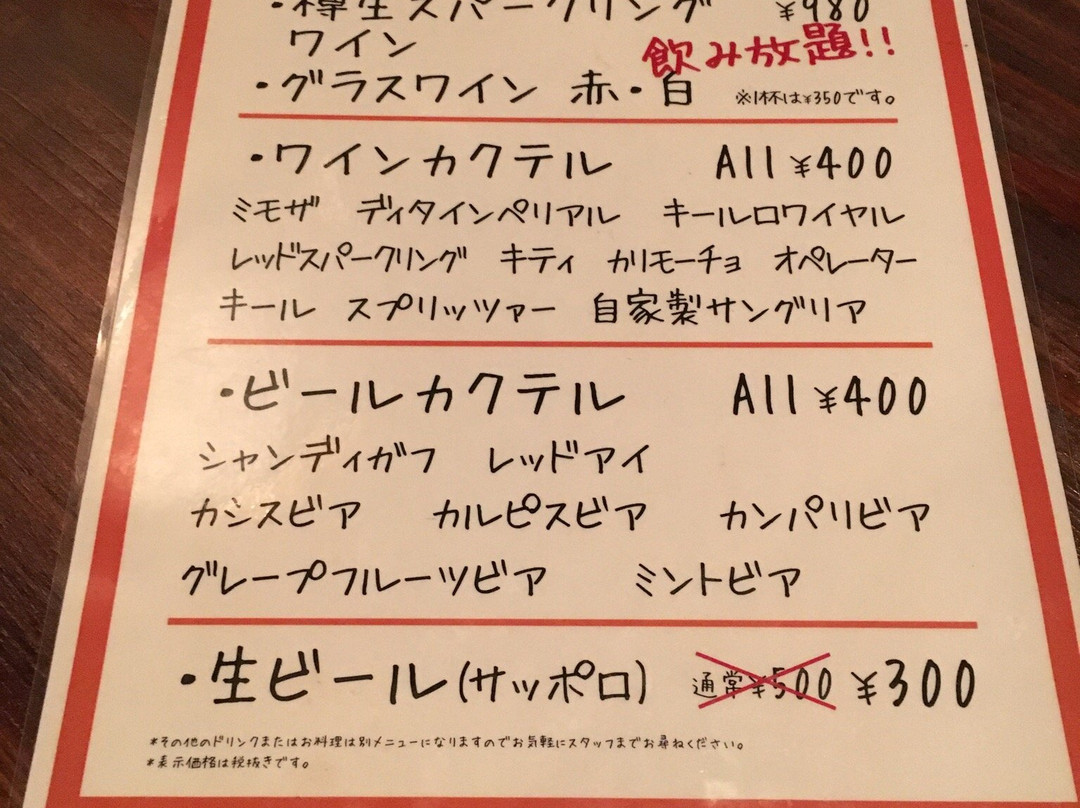 ・樽生スパークリング ¥980
ワイン 飲み放題!!
・グラスワイン 赤・白 ※1杯は¥350です。
・ワインカクテル All ¥400
ミモザ ディタインペリアル キールロワイヤル
レッドスパークリング キティ カリモーチョ オペレーター
キール スプリッツァー 自家製サングリア
・ビールカクテル All ¥400
シャンディガフ レッドアイ
カシスビア カルピスビア カンパリビア
グレープフルーツビア ミントビア
・生ビール(サッポロ) 通常¥500 ¥300
*その他のドリンクまたはお料理は別メニューになりますのでお気軽にスタッフまでお尋ねください。
*表示価格は税抜きです。